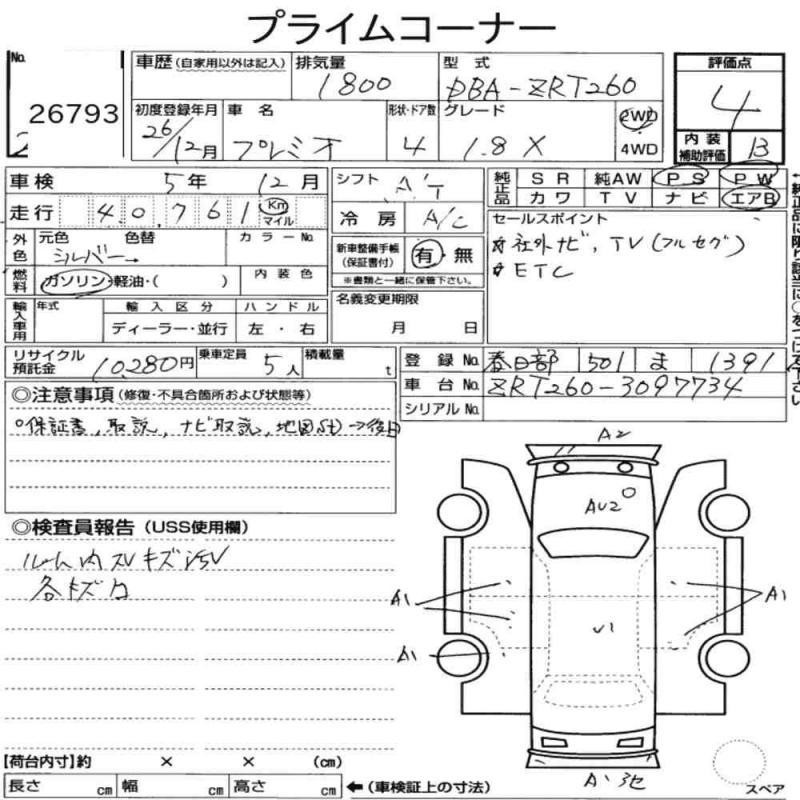 プライムコーナー
No. 26793
車歴 (自家用以外は記入) 排気量 1800 型式 DBA-ZRT260
初度登録年月 26/12月 車名 プレミオ 形状・ドア数 4 グレード 1.8 X 2WD 4WD
評価点 4
内装補助評価 B
車検 5年 12月 シフト AT
走行 40,761 Km マイル 冷房 A/C
純正品 SR 純AW PS PW
カワ TV ナビ エアB
外色 元色 色替 シルバー→ カラーNo.
新車整備手帳(保証書付) 有・無
※書類と一緒に保管下さい。
セールスポイント
☆社外ナビ, TV (フルセグ)
☆ETC
燃料 ガソリン・軽油・( ) 内装色
名義変更期限 月 日
輸入車用 年式 輸入区分 ハンドル
ディーラー・並行 左・右
リサイクル預託金 10,280円 乗車定員 5人 積載量 t
登録No. 春日部 501 ま 1391
車台No. ZRT260-3097734
シリアルNo.
◎注意事項 (修復・不具合箇所および状態等)
○保証書, 取説, ナビ取説, 地図SD→後日
◎検査員報告 (USS使用欄)
ルーム内スレキズ汚レ
各キズ凹
A2
AU2
A1
A1
A1
U1
A1
スペア
【荷台内寸】約 × × (cm)
長さ cm 幅 cm 高さ cm ←(車検証上の寸法)